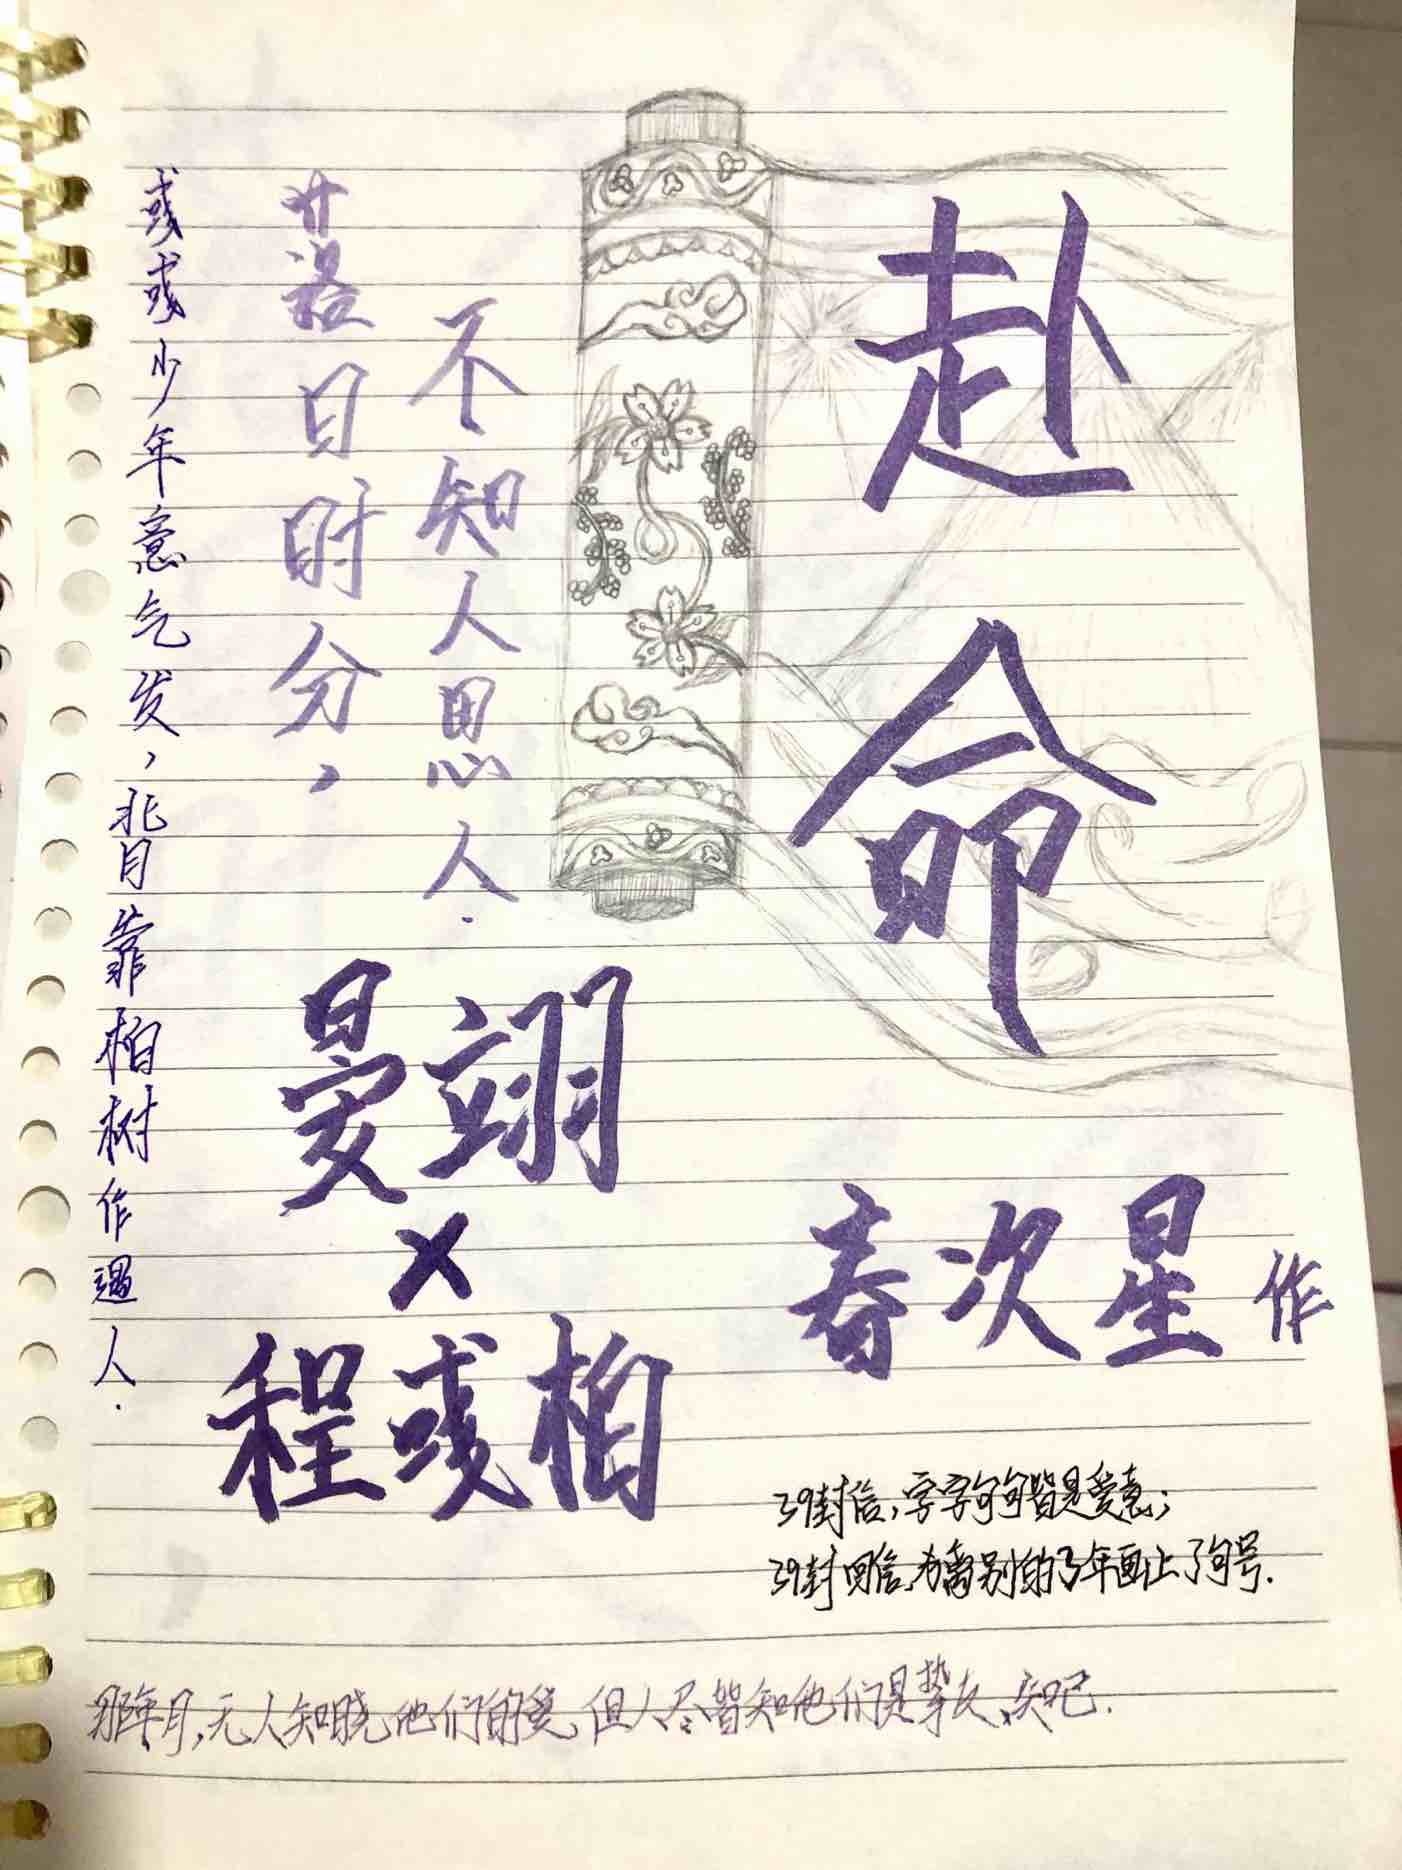 赴命
落日时分，
不知人思人.
彧彧少年意气发，背靠柏树作遇人.
晏翊
×
程彧柏
春次星 作
39封信，字字句句皆是爱意；
39封回信，为离别的3年画上了句号.
那年月，无人知晓他们的爱，但人尽皆知他们是挚友、知己.